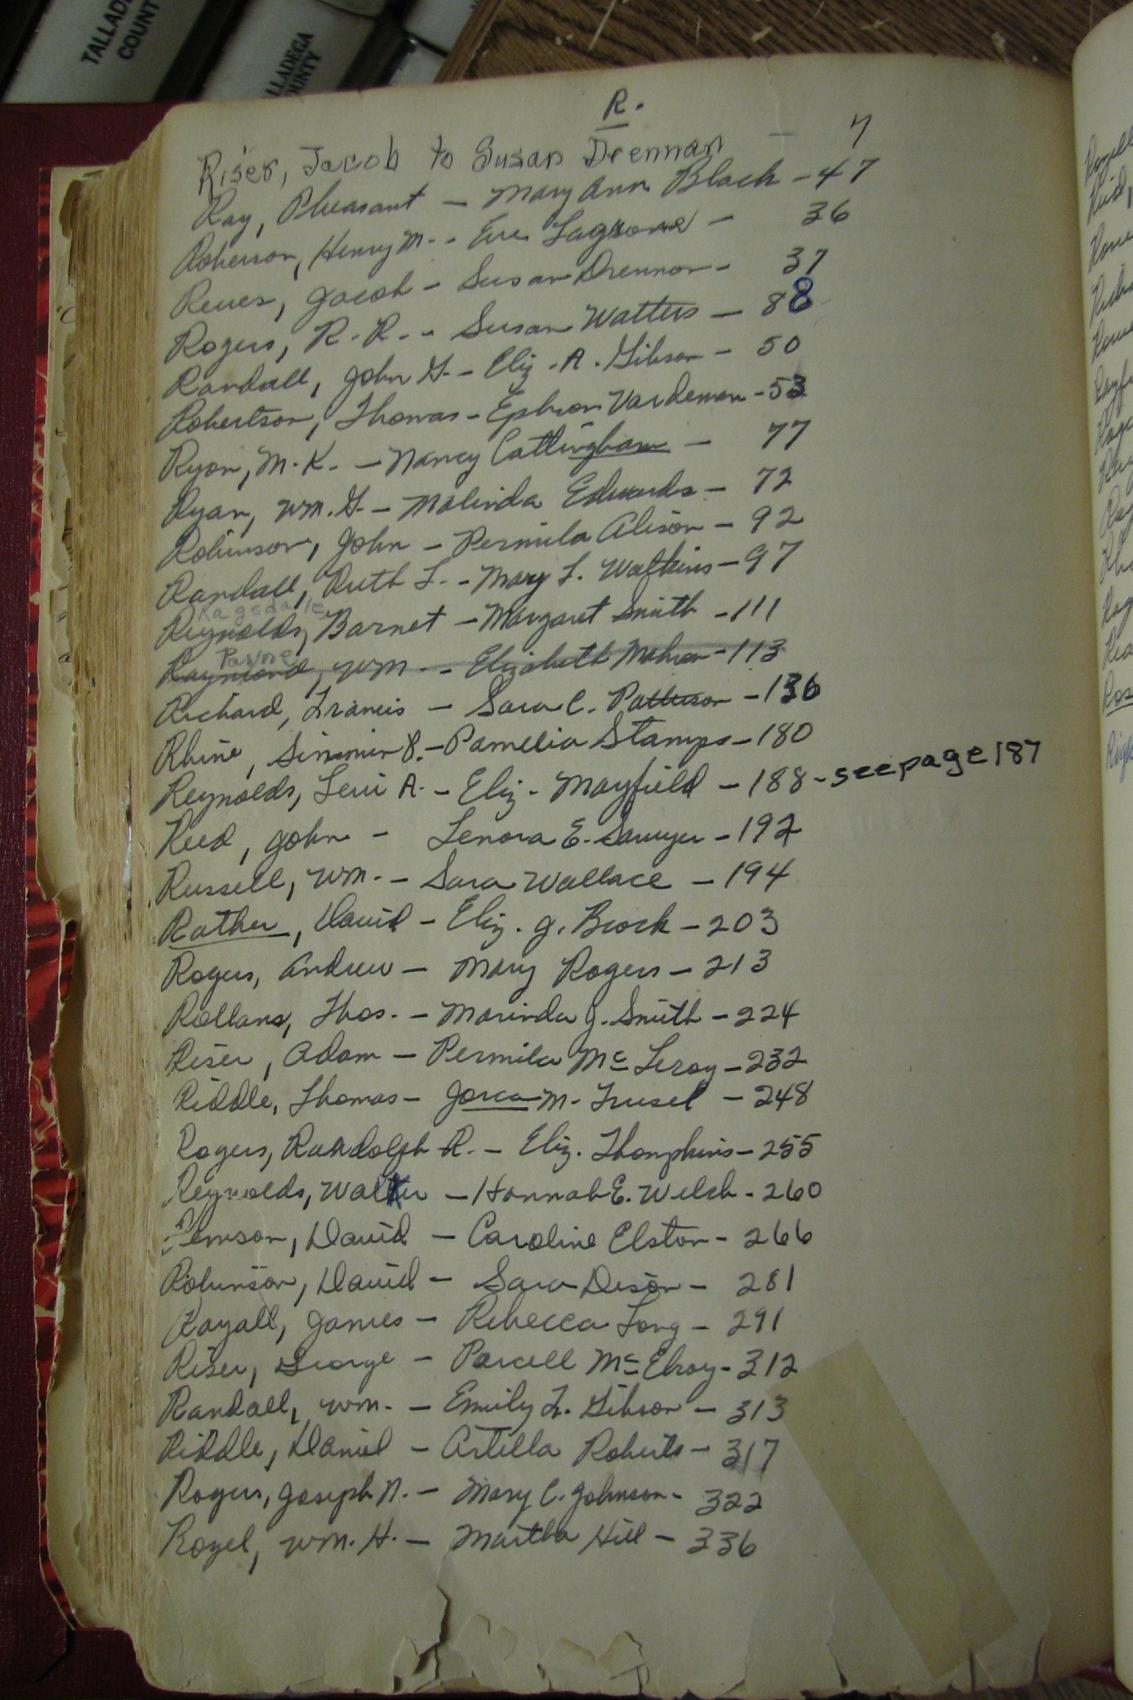 TALLADE
COUNT
LLADEGA
OUNTY
R.
Riser, Jacob to Susan Drennan - 7
Ray, Pleasant - Mary Ann Black - 47
Roberson, Henry M. - Eve Lagrone - 36
Reues, Jacob - Susan Drennon - 37
Rogers, R. R. - Susan Watters - 88
Randall, John G. - Eliz. A. Gibson - 50
Robertson, Thomas - Ephron Vardeman - 53
Ryon, M. K. - Nancy Cattingham - 77
Ryan, Wm. G. - Malinda Edwards - 72
Robinson, John - Permila Alison - 92
Randall, Ruth L. - Mary L. Watkins - 97
Ragsdale
Reynolds, Barnet - Margaret Smith - 111
Payne
Raymond, Wm. - Elizabeth Mohan - 113
Richard, Francis - Sara C. Patterson - 136
Rhine, Simmie B. - Pamelia Stamps - 180
Reynolds, Levi A. - Eliz. Mayfield - 188 - see page 187
Reed, John - Lenora E. Sawyer - 192
Russell, Wm. - Sara Wallace - 194
Rather, David - Eliz. J. Brock - 203
Rogers, Andrew - Mary Rogers - 213
Rollans, Thos. - Marinda J. Smith - 224
Riser, Adam - Permila McLeroy - 232
Riddle, Thomas - M. Frusel - 248
Rogers, Randolph R. - Eliz. Thompkins - 255
Reynolds, Walter - Hannah E. Welch - 260
David - Caroline Elston - 266
Robinson, David - Sara Deson - 281
Rayall, James - Rebecca Long - 291
Riser, George - Parcell McElroy - 312
Randall, Wm. - Emily L. Gibson - 313
Riddle, Daniel - Artilla Roberts - 317
Rogers, Joseph N. - Mary C. Johnson - 322
Rozel, Wm. H. - Martha Hill - 336